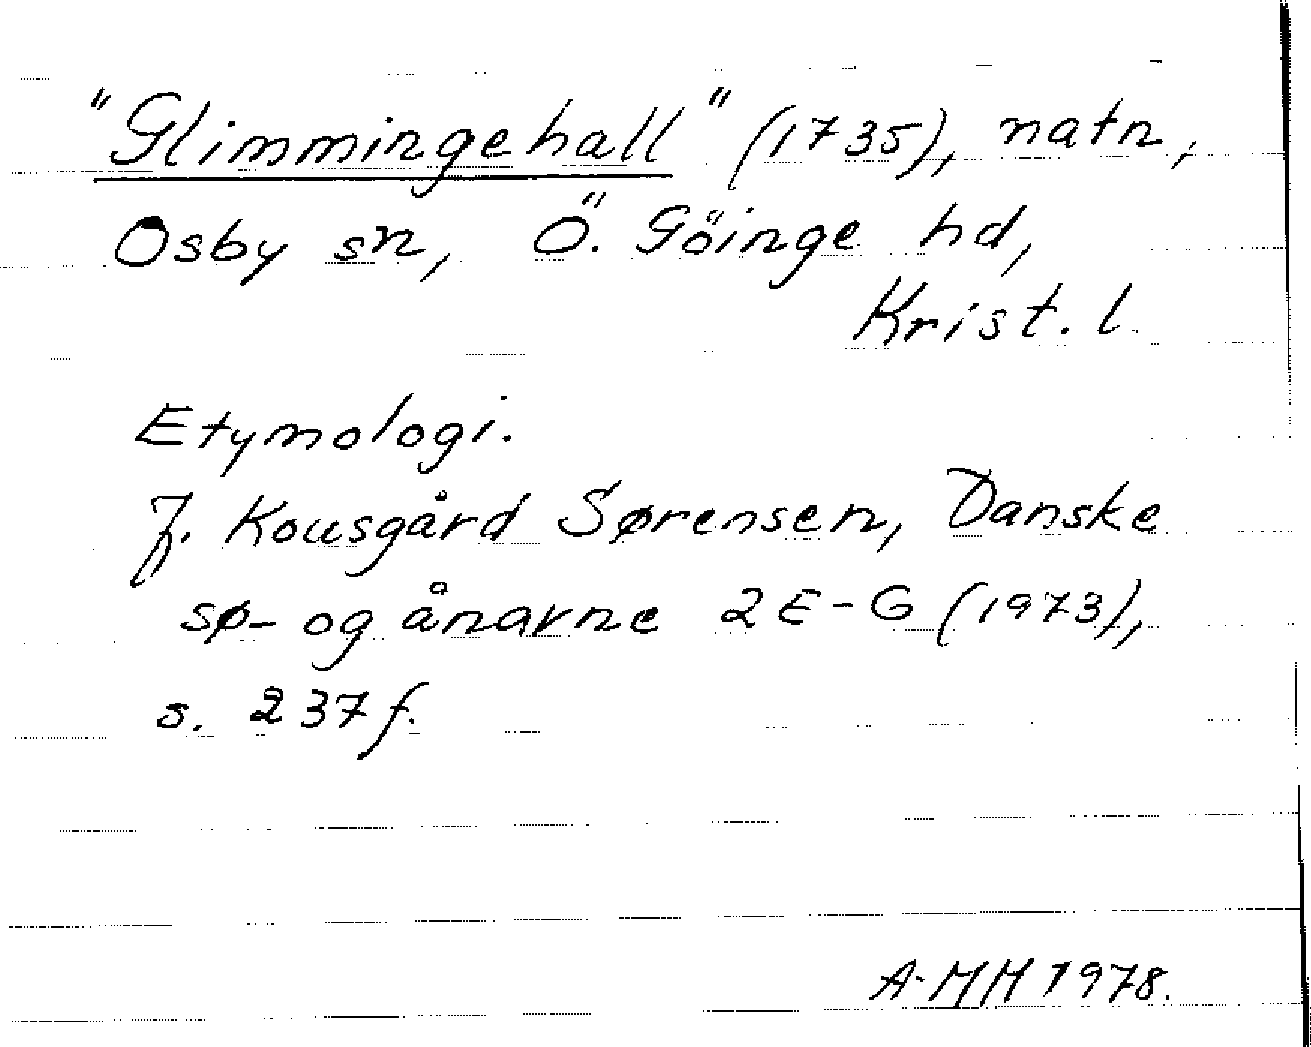 "Glimmingehall" (1735), natn,
Osby sn, Ö. Göinge hd,
Krist. l.
Etymologi.
J. Kousgård Sørensen, Danske
sø- og ånavne 2 E-G (1973),
s. 237 f.
A-MH 1978.